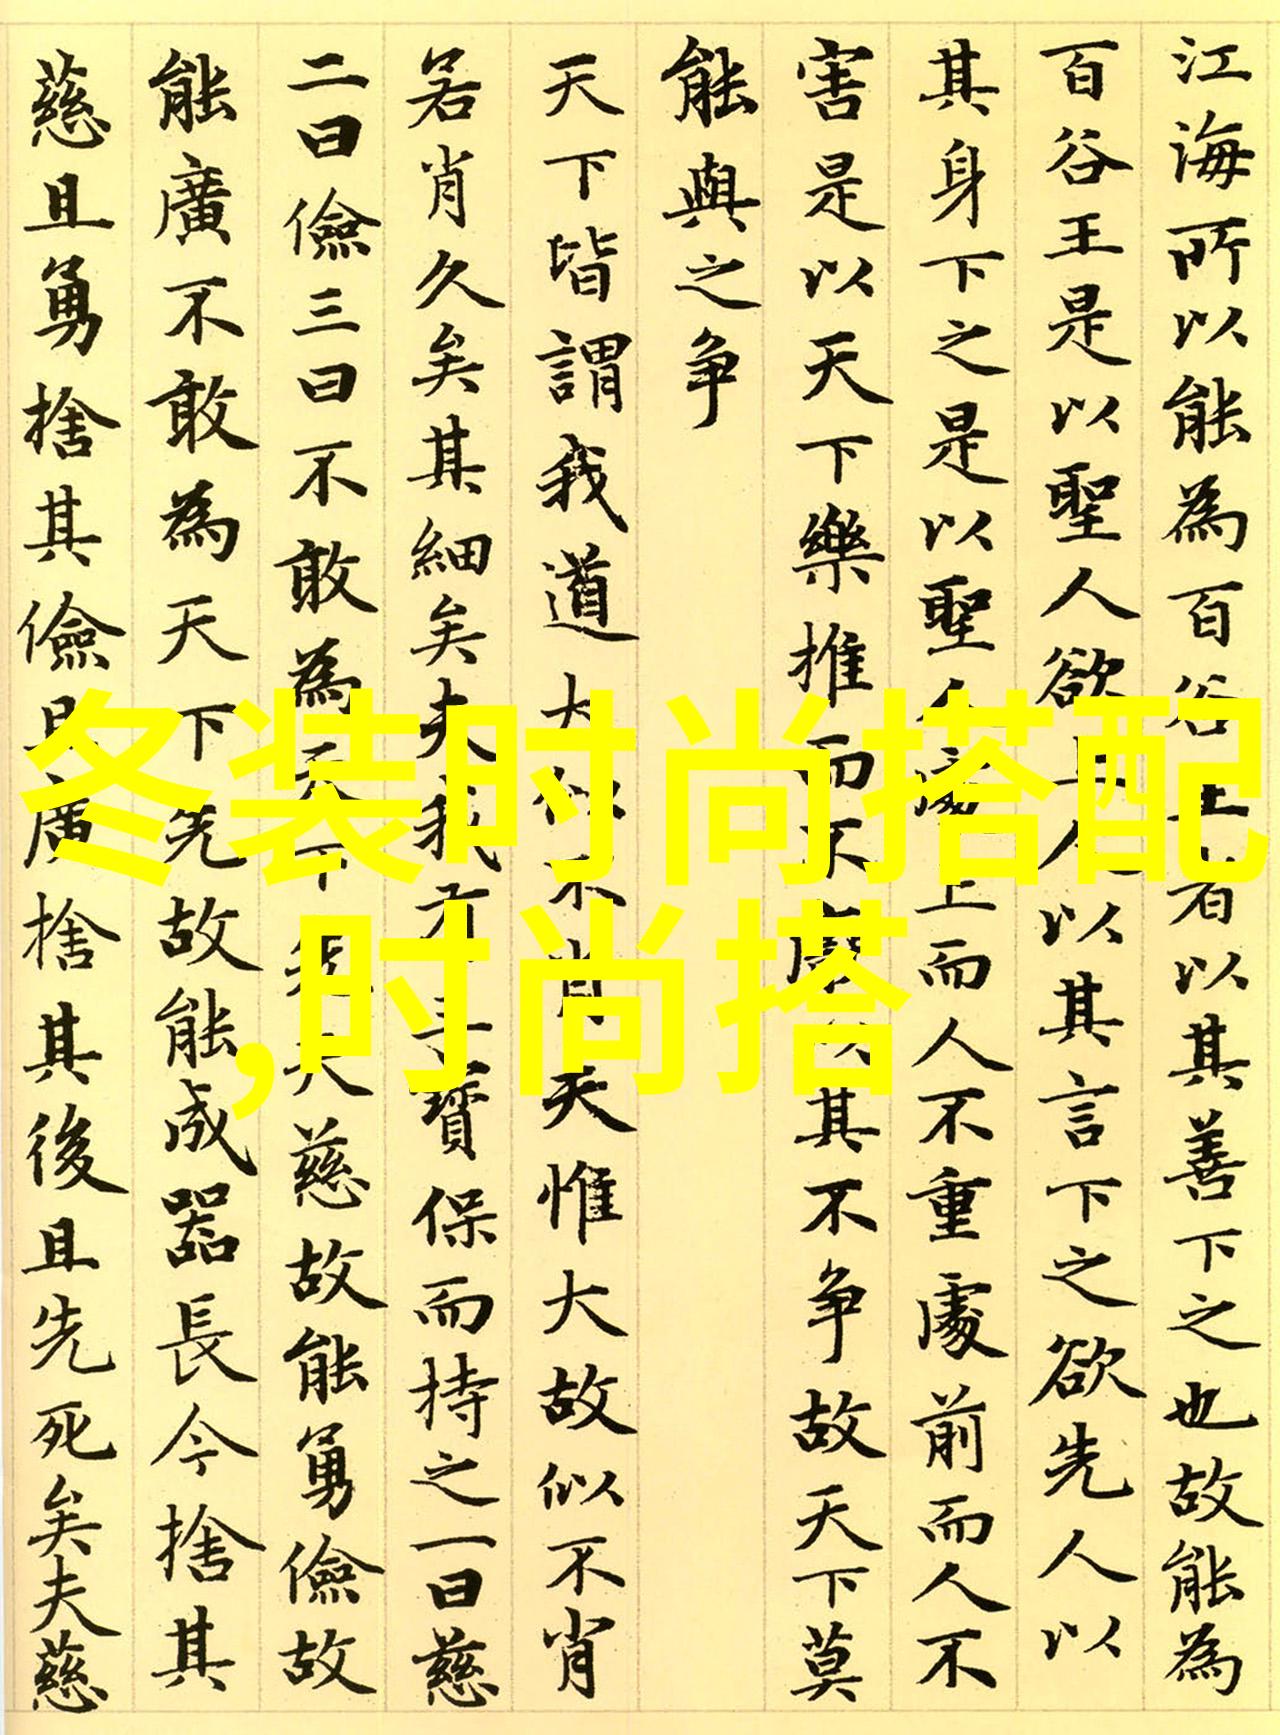 江海所以能為百谷王者以其善下之也故能為
百谷王是以聖人欲上人以其言下之欲先人以
其身下之是以聖人處上而人不重處前而人不
害是以天下樂推而不厭以其不争故天下莫
能與之争
天下皆謂我道大似不肖夫惟大故似不肖
若肖久矣其細矣夫我有三寶保而持之一曰慈
二曰儉三曰不敢為天下先夫慈故能勇儉故
能廣不敢為天下先故能成器長今捨其
慈且勇捨其儉且廣捨其後且先死矣夫慈
冬装时尚搭配
,时尚搭